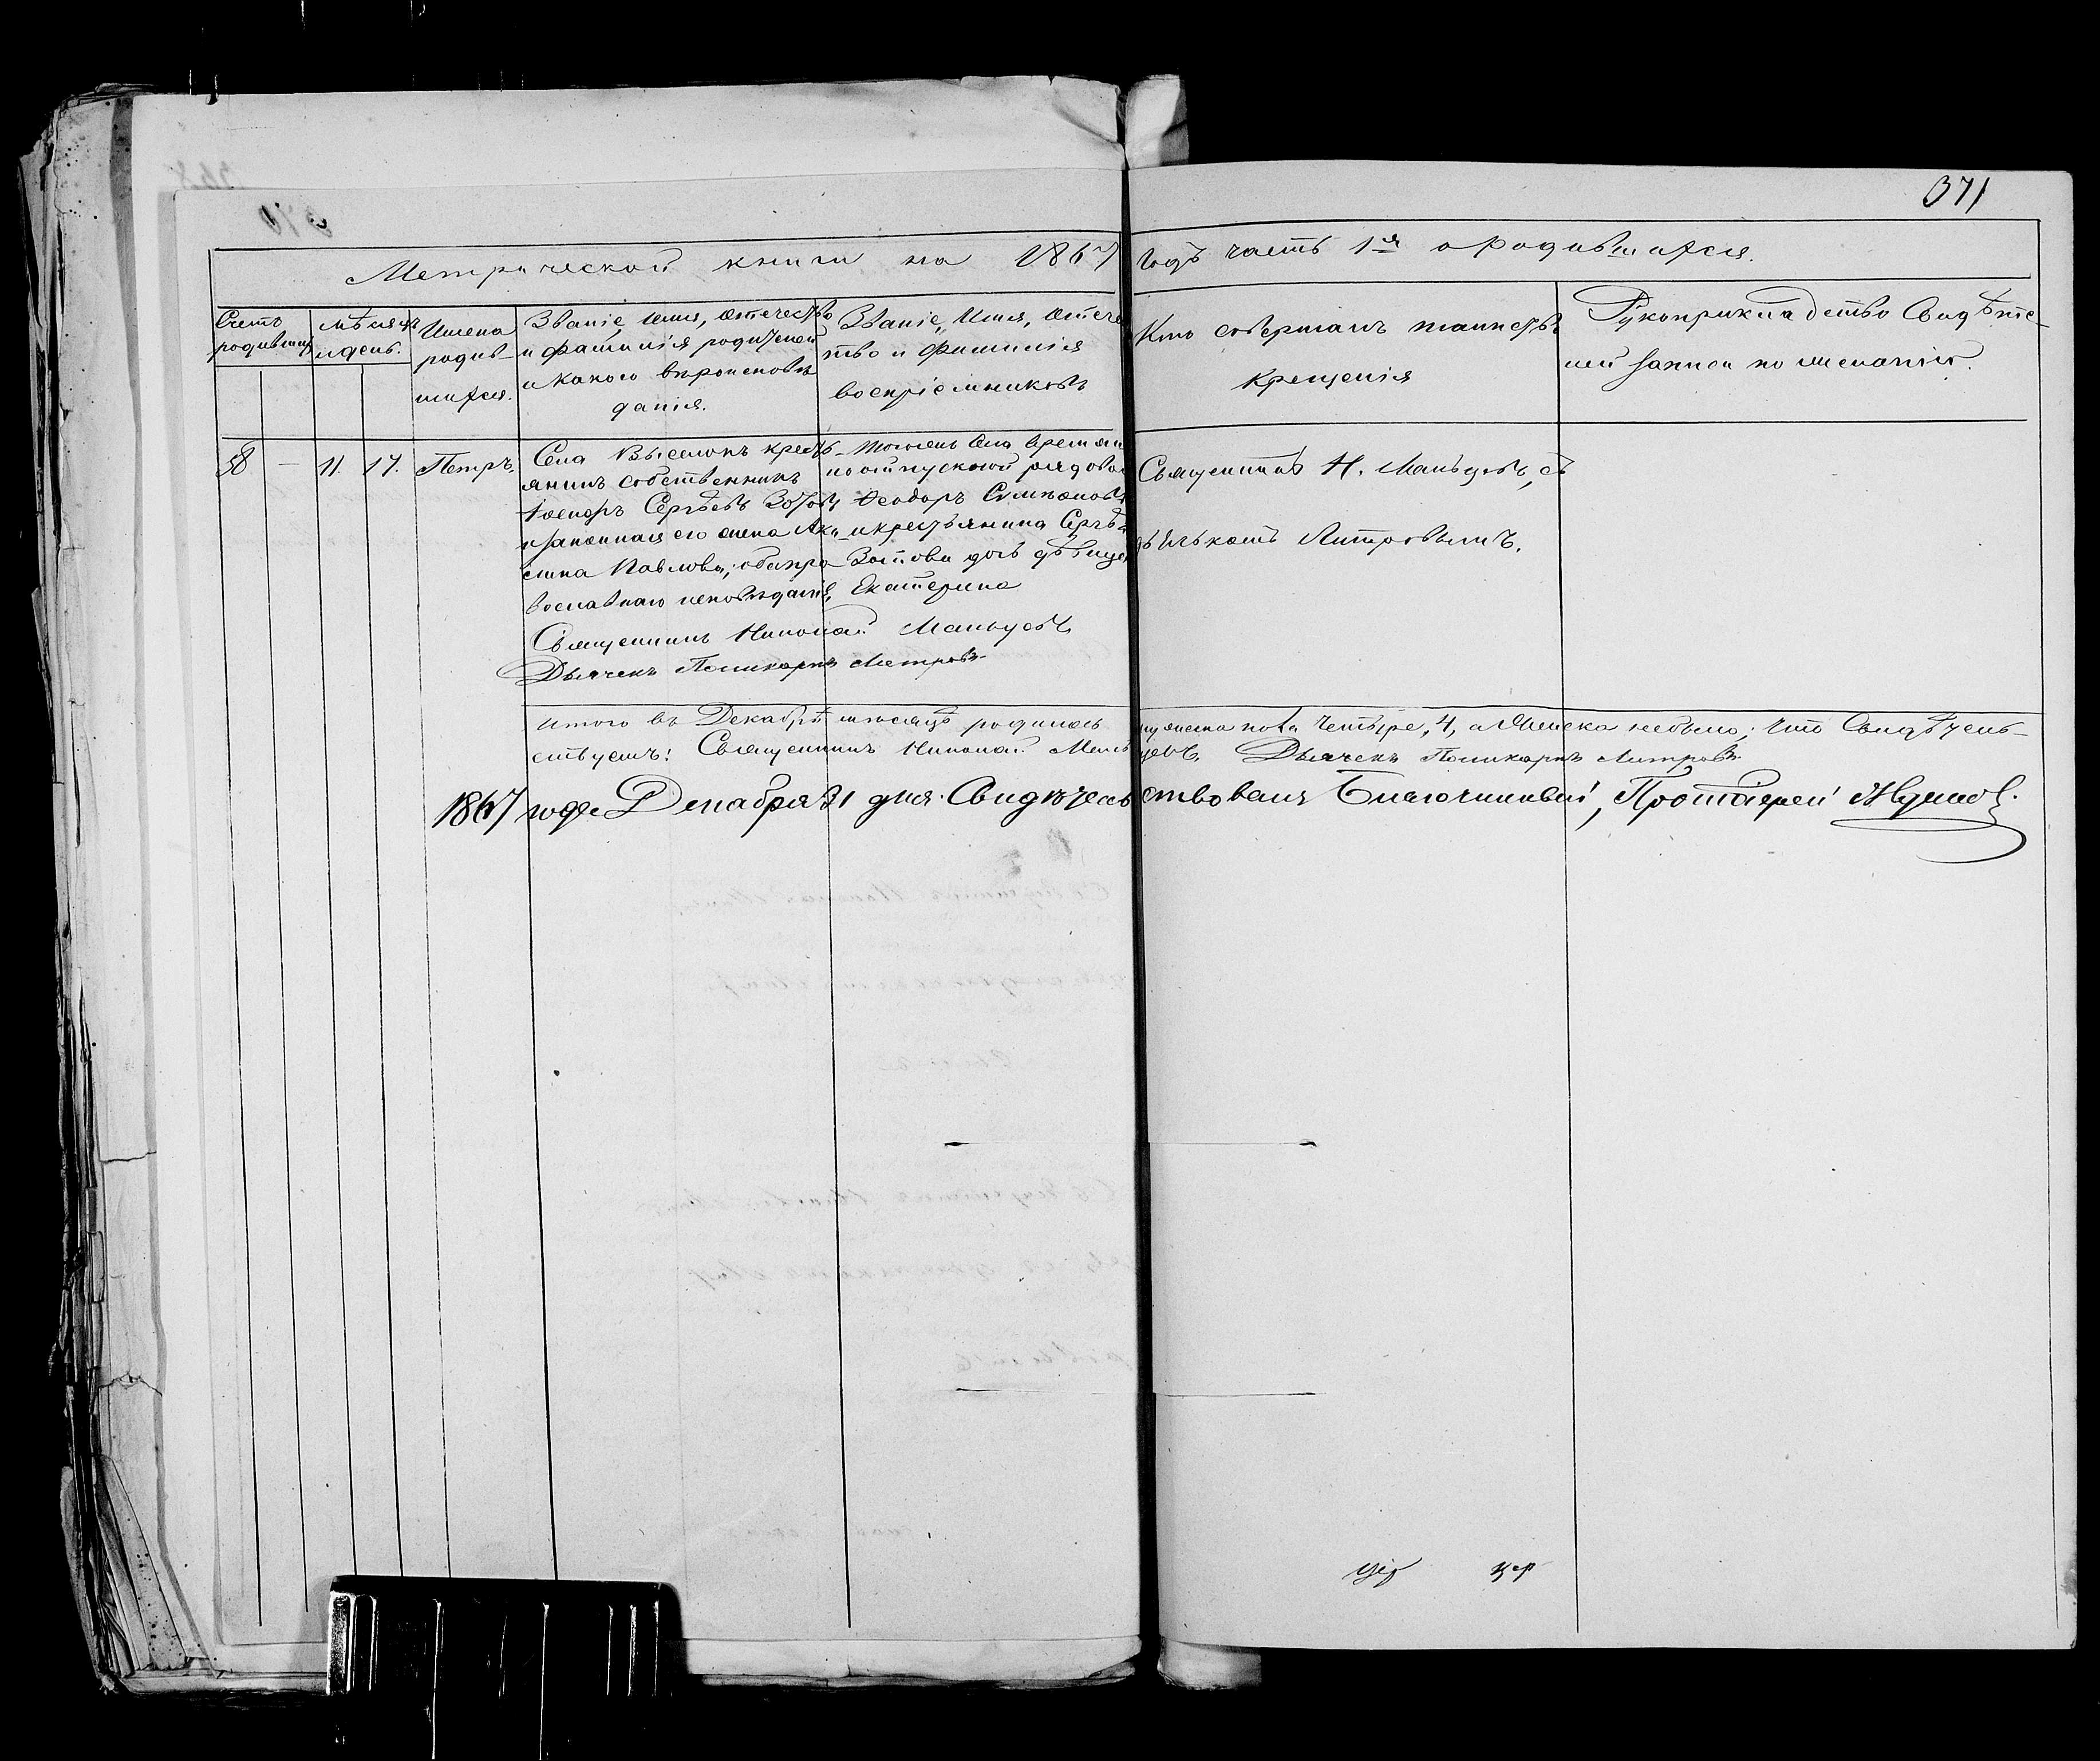 371
Метрической книги на 1867 годъ часть 1я о родившихся.
Счетъ родившихся
мѣсяцъ и день.
Имена родив-
шихся.
Званіе, имя, отечество
и фамилія родителей
и какого вѣроисповѣ
данія.
Званіе, Имя, Отече
ство и Фамилія
воспріемниковъ
Кто совершалъ таинство
крещенія
Рукоприкладство Свидѣте-
лей записи по желанію.
58 — 11. 17. Петръ.
Села Выселокъ кресть-
янинъ собственникъ
Сергѣевъ Зотовъ
и законная его жена Аку-
лина Павлова; обапра
вославнаго исповѣданія,
Тогожъ села временно
отпускной рядовой
Ѳеодоръ
и крестьянина Сергѣя
Зотова дочь дѣвица
Екатерина
Священникъ Н. Мальцевъ, съ
дьячкомъ Митровымъ.
Священникъ Николай Мальцевъ
Дьячекъ Поликарпъ Митровъ
Итого въ Декабрѣ мѣсяцѣ родилось мужеска пола Четыре, 4, а Женска небыло; что Свидѣтель-
ствуемъ: Священникъ Николай Мальцевъ. Дьячекъ Поликарпъ Митровъ
1867 года Декабря 31 дня. Свидѣтельствовалъ Благочинный, Протоіерей